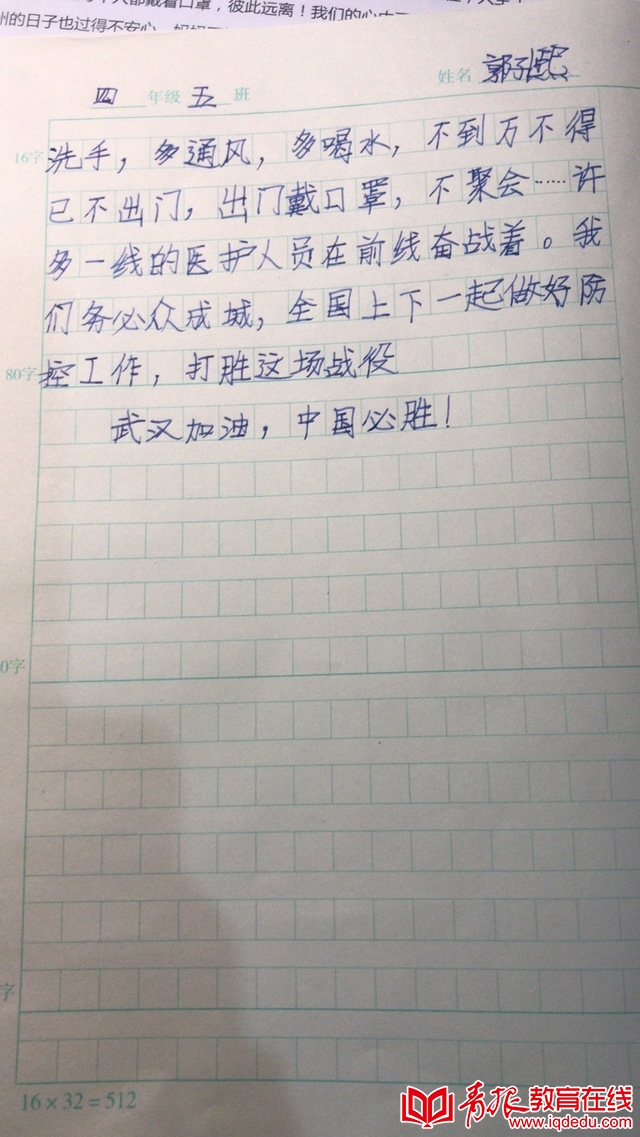 州的日子也过得不安心
个人都戴着口罩，彼此远离！我们的心
四 年级 五 班 姓名 郭子熙
16字 洗手，多通风，多喝水，不到万不得
已不出门，出门戴口罩，不聚会……许
多一线的医护人员在前线奋战着。我
们务必众成城，全国上下一起做好防
80字 控工作，打胜这场战役
武汉加油，中国必胜！
0字
字
16×32=512
青报教育在线
www.iqdedu.com